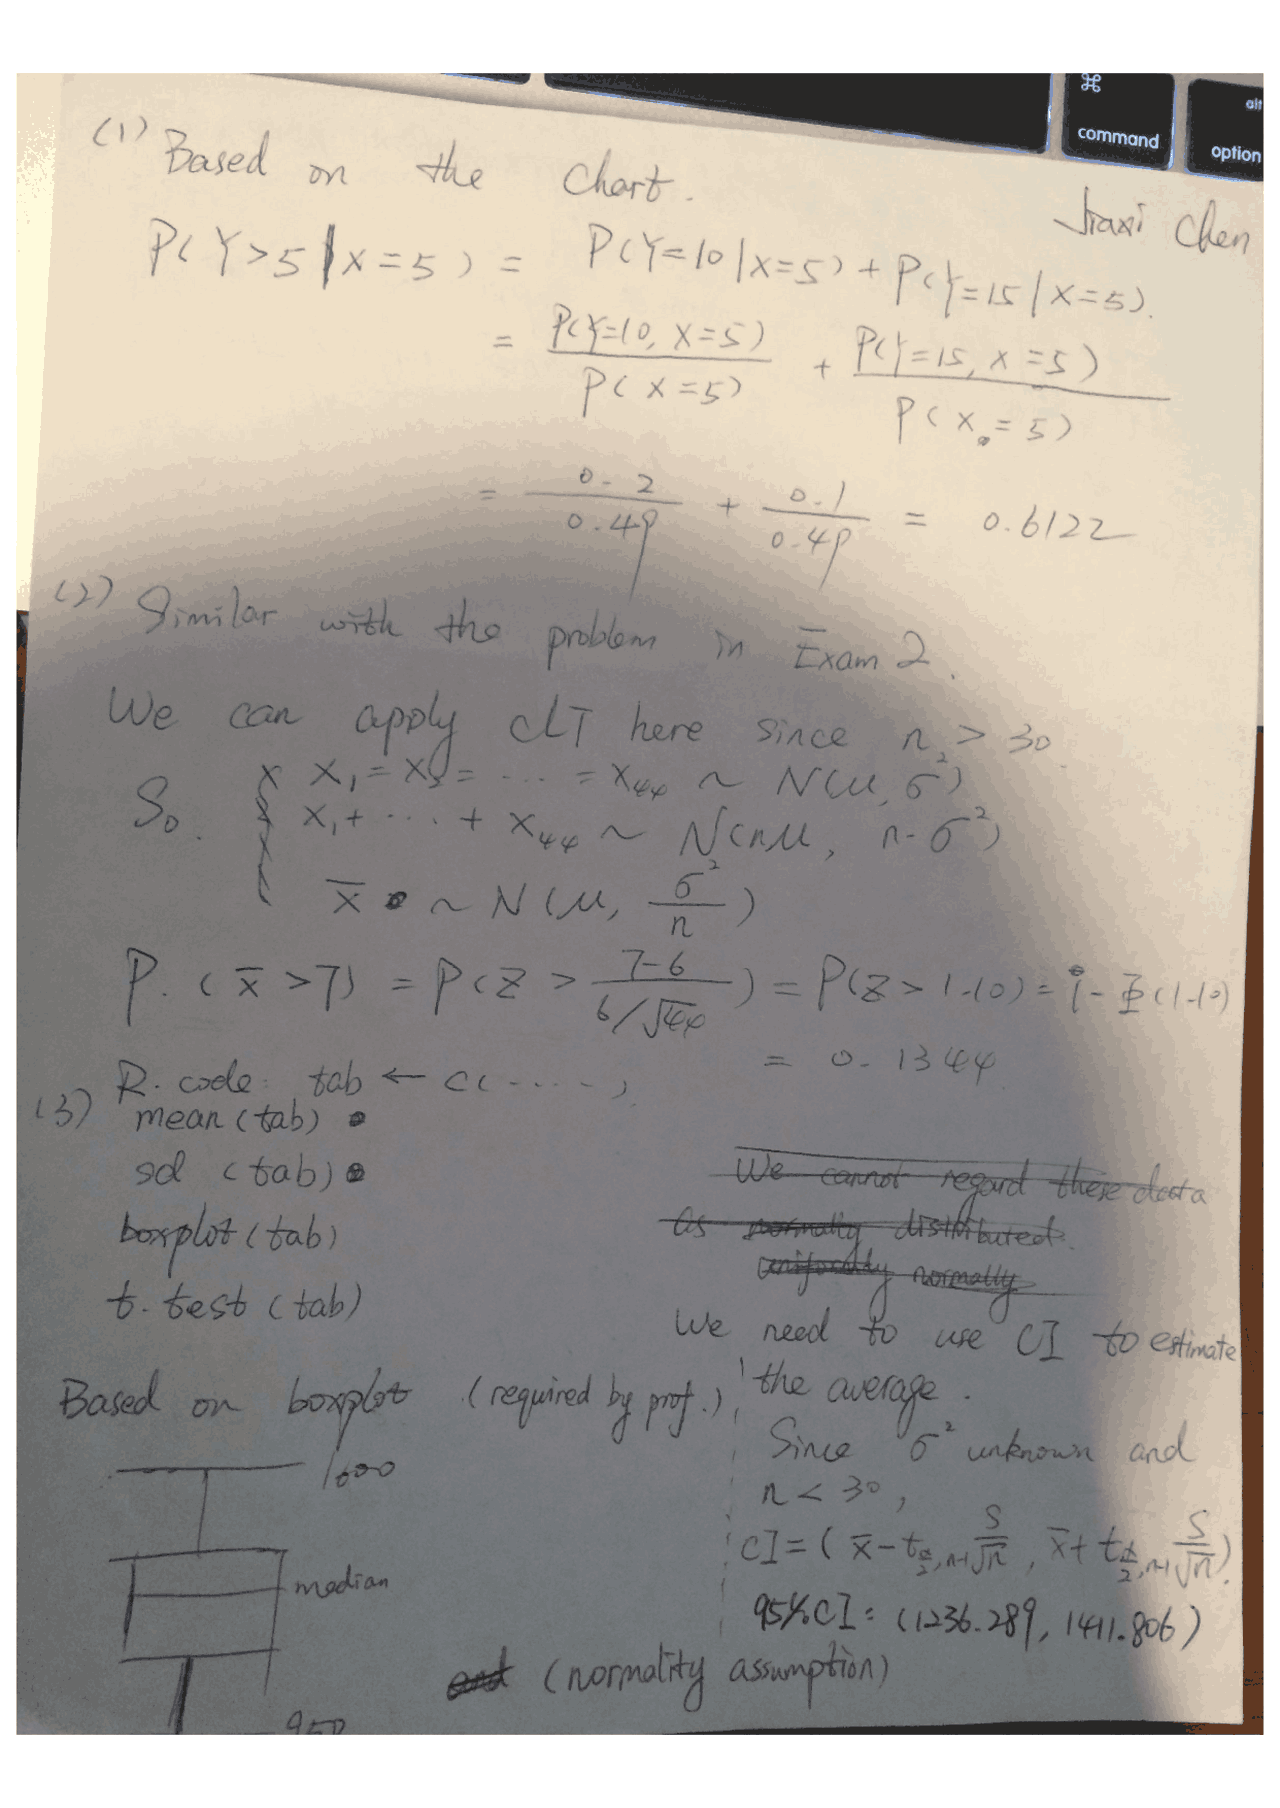 ⌘
command
alt
option
(1) Based on the chart.
Jiaxi Chen
P(Y>5|X=5) = P(Y=10|X=5) + P(Y=15|X=5).
= P(Y=10, X=5) / P(X=5) + P(Y=15, X=5) / P(X=5)
= 0.2 / 0.49 + 0.1 / 0.49 = 0.6122
(2) Similar with the problem in Exam 2.
We can apply CLT here since n > 30
So. X X₁ = X₂ = ... = X₄₄ ~ N(μ, σ²)
X₁ + ... + X₄₄ ~ N(nμ, n·σ²)
x̄ ~ N(μ, σ²/n)
P. (x̄ > 7) = P(Z > (7-6) / (6/√44)) = P(Z > 1.10) = 1 - Φ(1.10)
= 0.1344
R. code: tab ← c(.....)
(3) mean (tab)
sd (tab)
boxplot (tab)
t. test (tab)
We cannot regard these data
as normally distributed.
uniformly normally
We need to use CI to estimate
the average.
Based on boxplot (required by prof.)
Since σ² unknown and
n < 30,
CI = (x̄ - t α/2, n-1 S/√n, x̄ + t α/2, n-1 S/√n)
95% CI: (1236.289, 1411.806)
1600
median
950
and (normality assumption)